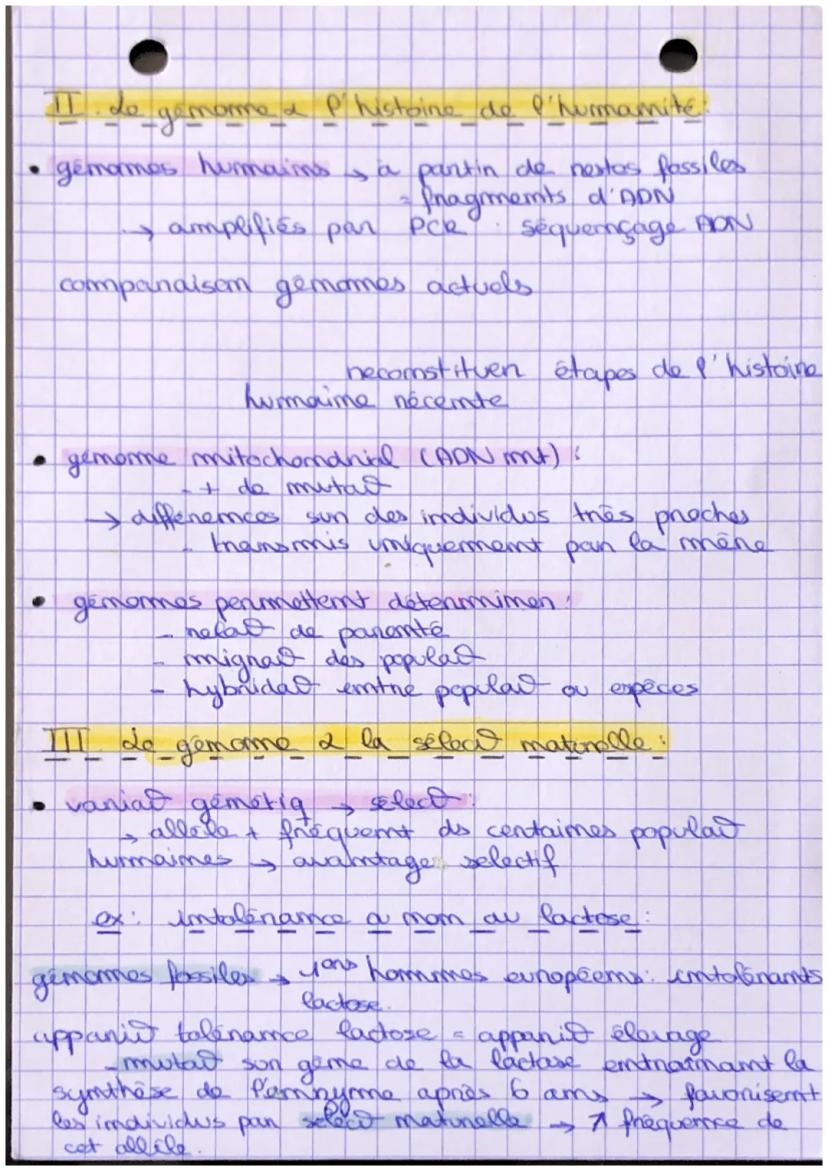 II. Le génome & l'histoire de l'humanité:
• génomes humains → à partir de restes fossiles
= fragments d'ADN
→ amplifiés par PCR : séquençage ADN
comparaison génomes actuels
reconstituer étapes de l'histoire
humaine récente
• génome mitochondrial (ADN mt) :
- + de mutat°
→ différences sur des individus très proches
- transmis uniquement par la mère
• génomes permettent déterminer :
- relat° de parenté
- migrat° des populat°
- hybridat° entre populat° ou espèces
III. Le génome & la sélect° naturelle :
• variat° génétiq → sélect° :
→ allèle + fréquent ds certaines populat°
humaines → avantage selectif
ex : intolérance a non au lactose :
génomes fossiles → 1ers hommes européens : intolérants
lactose.
apparit° tolérance lactose = apparit° élevage
- mutat° sur gène de la lactase entraînant la
synthèse de l'enzyme après 6 ans → favorisent
les individus par sélect° naturelle → ↑ fréquence de
cet allèle.